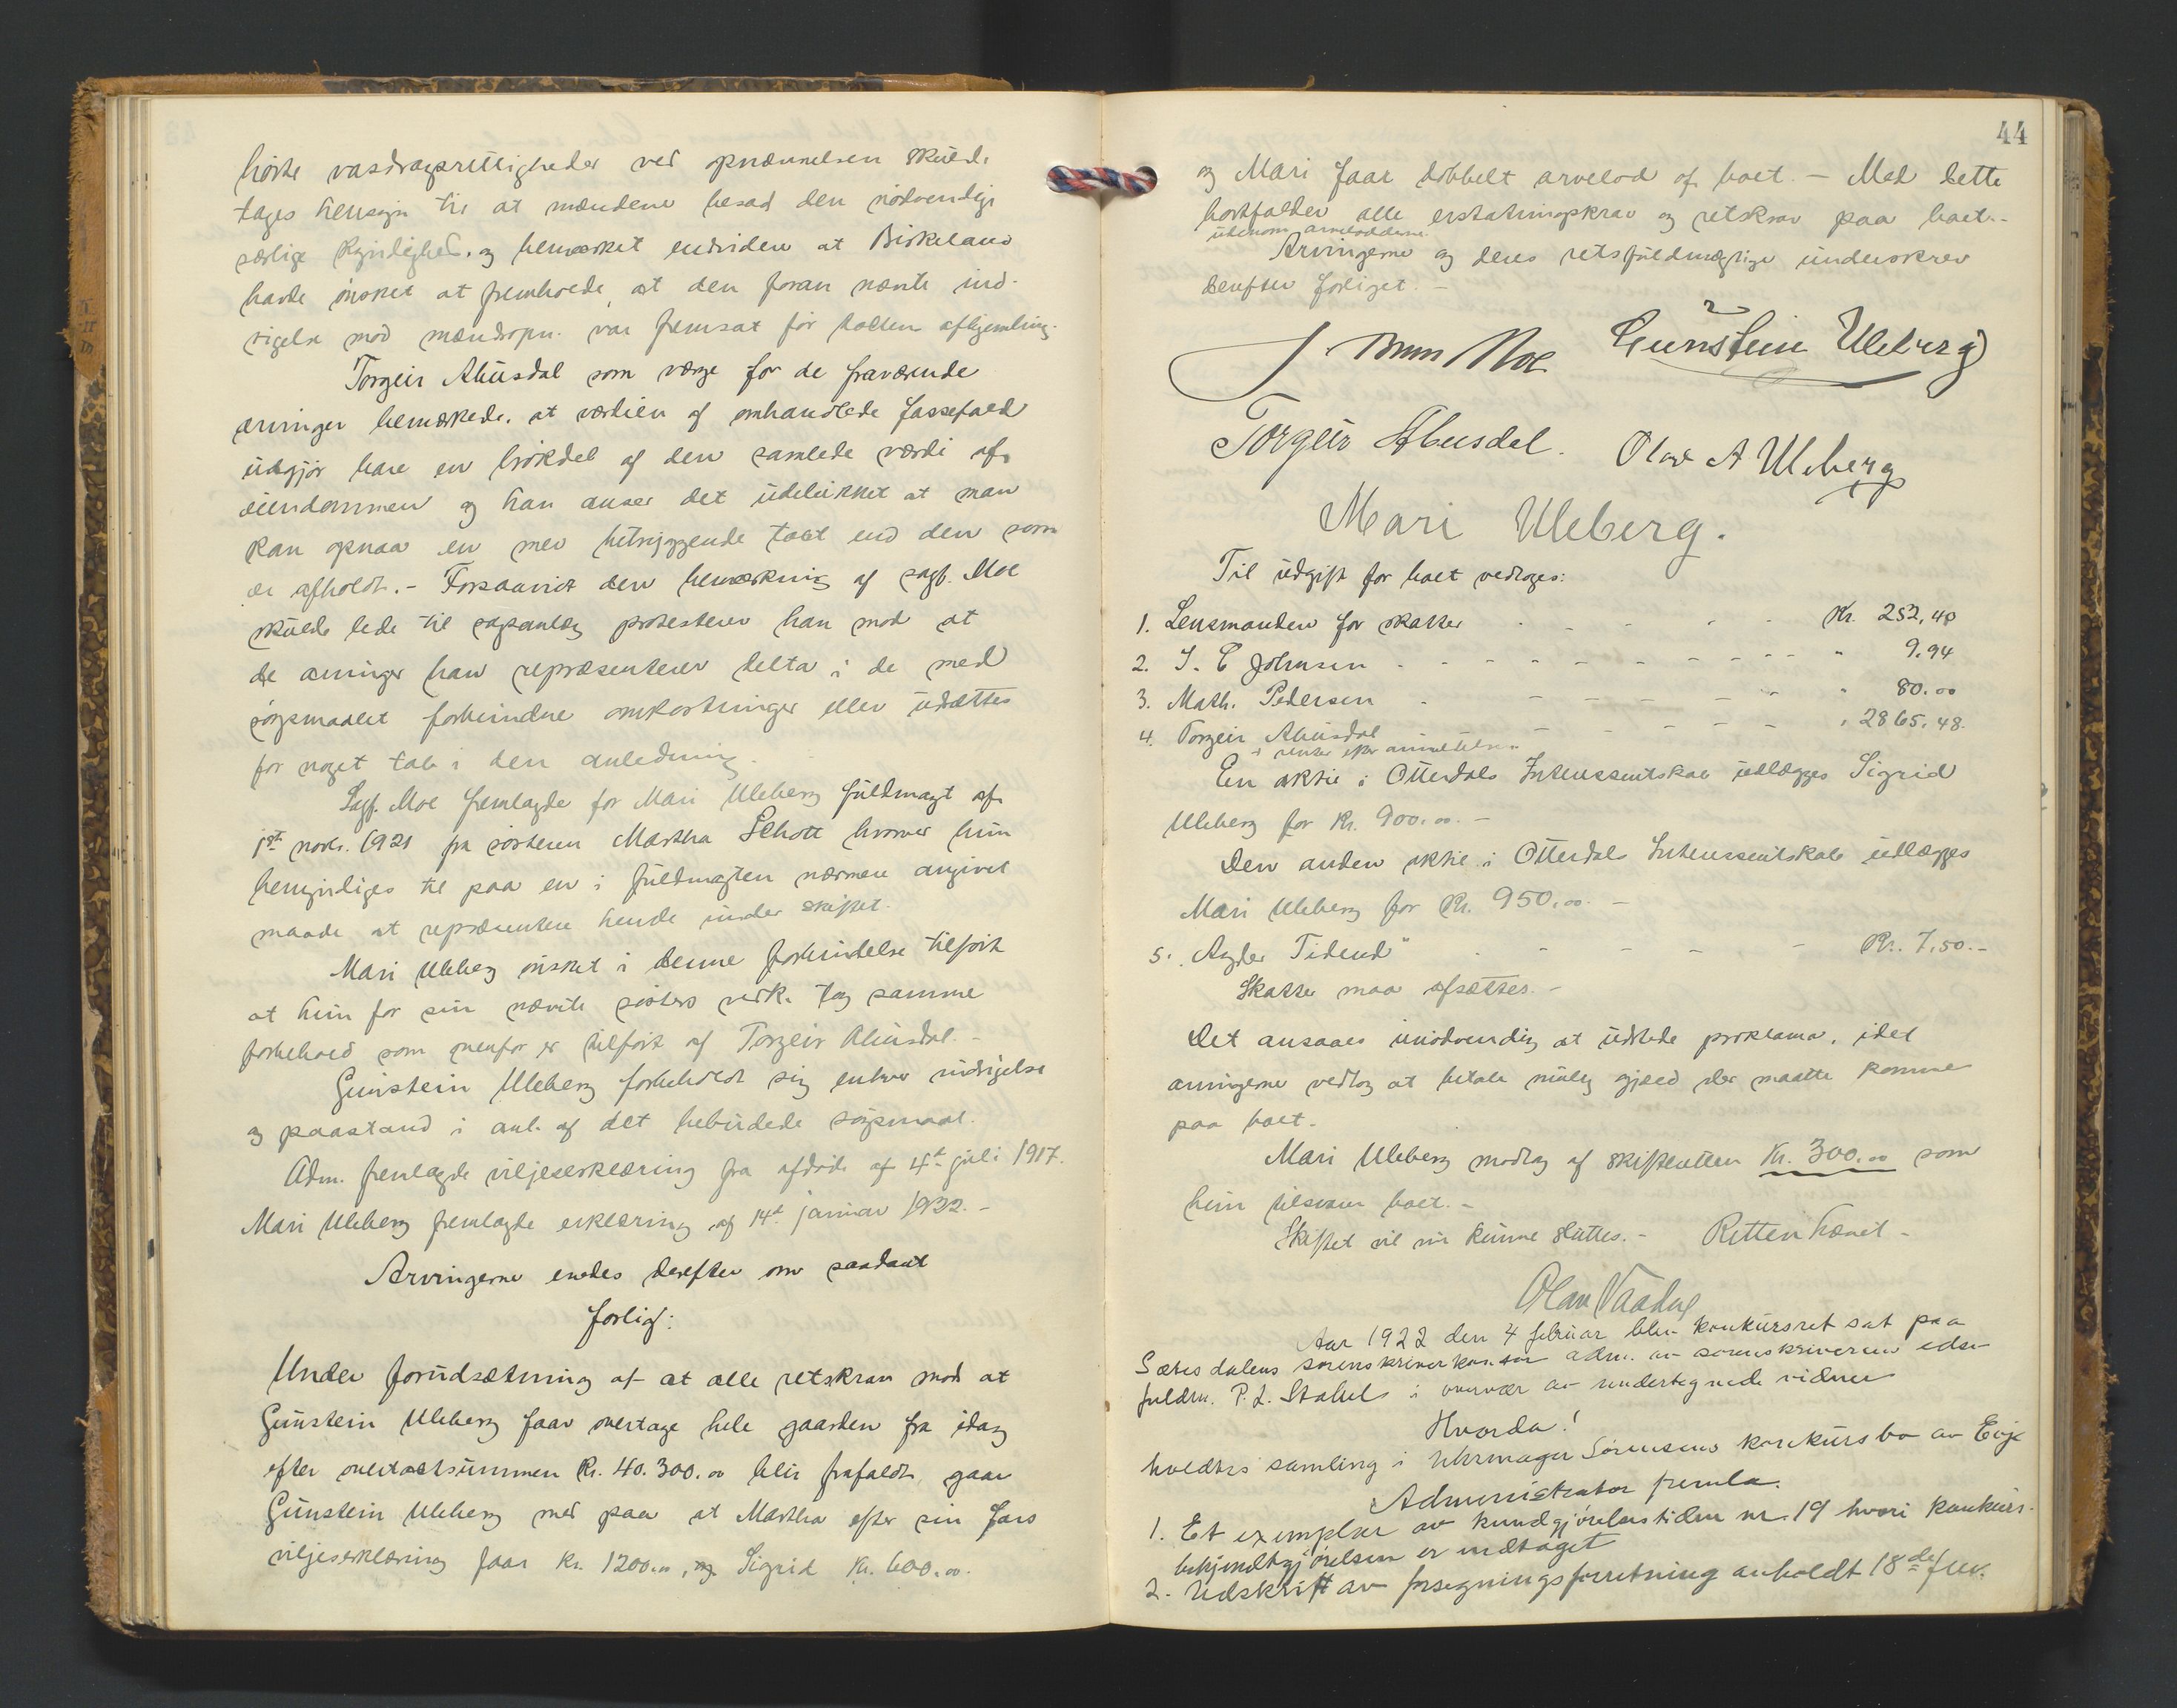 hørte vasdragsrettigheder ved opnævnelsen skulde
tages hensyn til at mændene besad den nødvendige
særlige kyndighed, og bemærket endvidere at Birkeland
havde ønsket at fremholde, at den foran nævnte ind-
sigelse mod mændsopn. var fremsat før takten afhjemling.
Torgeir Ahusdal som værge for de fraværende
arvinger bemærkede, at værdien af omhandlede fossefald
udgjør bare en brøkdel af den samlede værdi af
eiendommen og han anser det udelukket at man
kan opnaa en mer betryggende takt end den som
er afholdt. - Forsaavidt den bemærkning af sagf. Moe
skulde lede til sapanlæg protesterer han mod at
de arvinger han repræsenterer delta i de med
søgsmaalet forbundne omkostninger eller udsættes
for noget tab i den anledning.
Sagf. Moe fremlagde for Mari Uleberg fuldmagt af
1st novbr. 1921 fra søsteren Martha Schott hvorved hun
bemyndiges til paa en i fuldmagten nærmere angivet
maade at repræsentere hende under skiftet.
Mari Uleberg ønsket i denne forbindelse tilført
at hun for sin nævnte søsters vedk. tog samme
forbehold som ovenfor er tilført af Torgeir Ahusdal. -
Gunstein Uleberg forbeholdt sig enhver indsigelse
og paastand i anl. af det bebudede søgsmaal.
Adm. fremlagde viljeserklæring fra afdøde af 4de juli 1917.
Mari Uleberg fremlagde erklæring af 14de januar 1922. -
Arvingerne enedes derefter om saadant
forlig:
Under forudsætning af at alle retskrav mod at
Gunstein Uleberg faar overtage hele gaarden fra idag
efter overtaktsummen Kr. 40.300.00 blir frafaldt, gaar
Gunstein Uleberg med paa at Martha efter sin fars
viljeserklæring faar Kr. 1200.00, og Sigrid Kr. 600.00.
44
og Mari faar dobbelt arvelod af boet. - Med dette
bortfalder alle erstatningskrav og retskrav paa boet. -
utenom arvelodderne.
Arvingerne og deres retsfuldmægtige underskrev
derefter forliget. -
Moe Gunstein Uleberg
Torgeir Ahusdal. Olav A Uleberg
Mari Uleberg.
Til udgift for boet vedtoges:
1. Lensmanden for skatter Kr. 252,40
2. J. C Johnsen - - - - " 9.94
3. Math. Pedersen - - - - " 80.00
4. Torgeir Ahusdal - - - - " 2865.48.
+ renter efter anmeldelsen
En aktie i Otterdals Interessentskab udlægges Sigrid
Uleberg for Kr. 900.00. -
Den anden aktie i Otterdals Interessentskab udlægges
Mari Uleberg for Kr. 950.00. -
5. "Agder Tidend" - - - - Kr. 7,50. -
Skatter maa afsættes. -
Det ansaaes unødvendig at udstede proklama, idet
arvingerne vedtog at betale mulig gjæld der maatte komme
paa boet.
Mari Uleberg modtog af skifteretten Kr. 300.00 som
hun tilsvarer boet. -
Skiftet vil nu kunne sluttes. - Retten hævet -
Olav
Aar 1922 den 4 februar blev konkursret sat paa
Sætesdalens sorenskriverkontor adm. av sorenskriverens edsv
fuldm. P. L. Stabel i overvær av undertegnede vidner
Hvorda!
holdtes samling i uhrmager Sørensens konkursbo av Evje
Administrator fremla.
1. Et exemplar av kundgjørelsestidende nr. 19 hvori konkurs-
bekjendtgjørelsen er indtaget
2. Udskrift av forsegningsforretning avholdt 18de f.m.